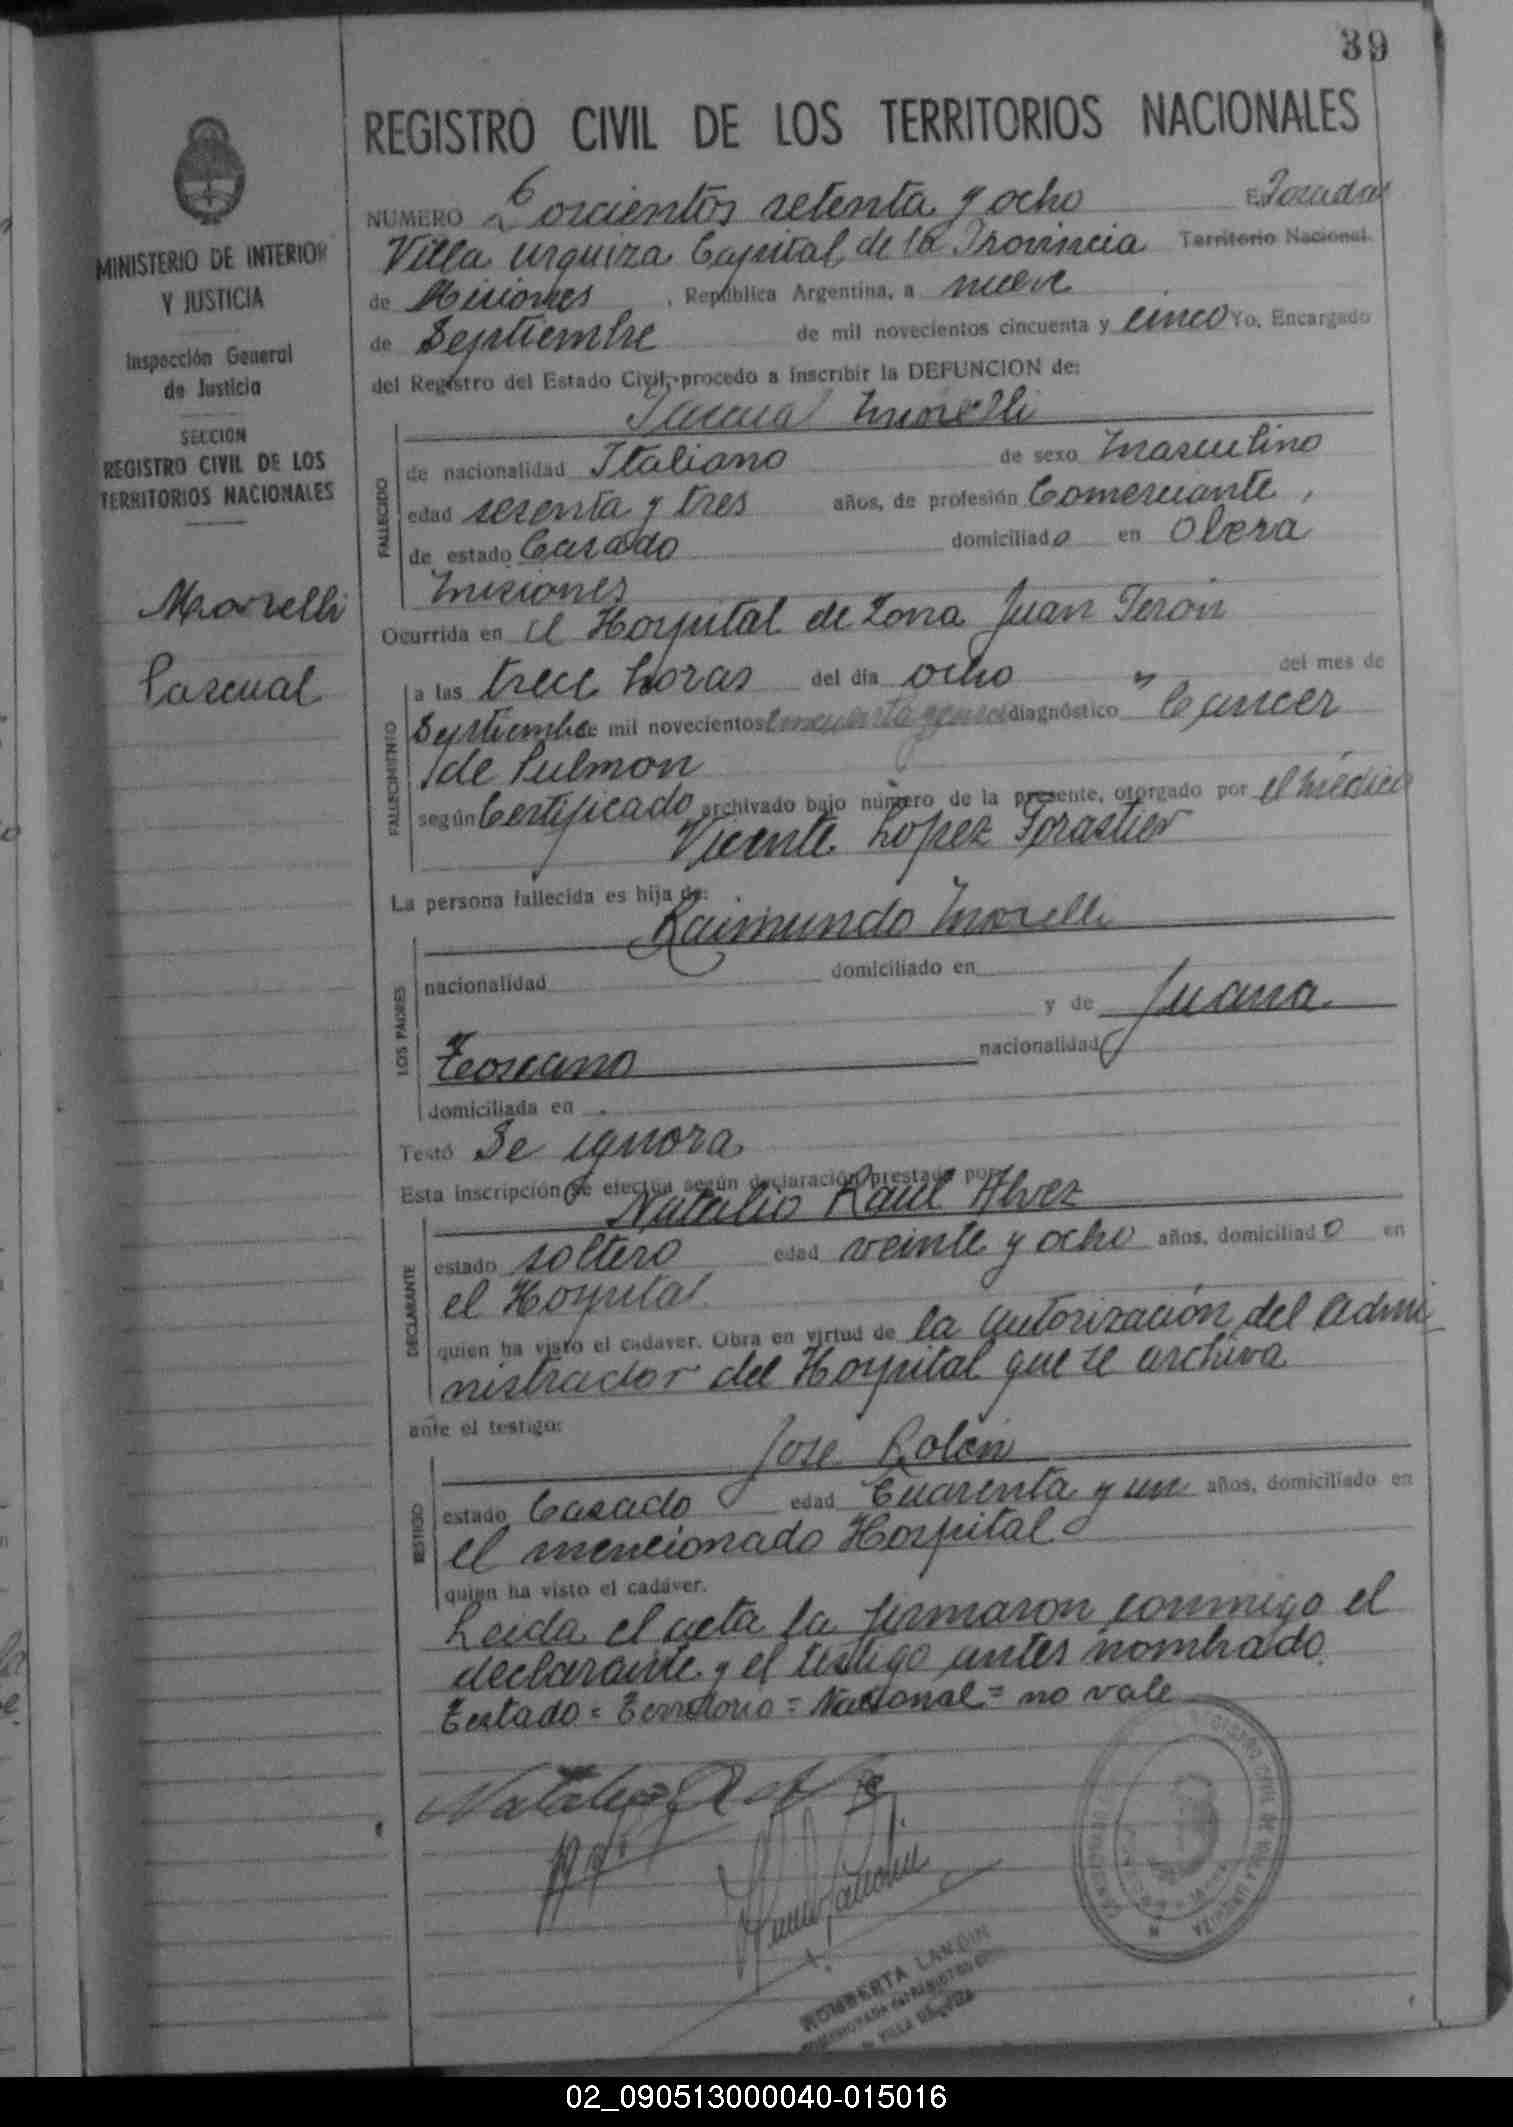 39
REGISTRO CIVIL DE LOS TERRITORIOS NACIONALES
MINISTERIO DE INTERIOR
Y JUSTICIA
Inspección General
de Justicia
SECCION
REGISTRO CIVIL DE LOS
TERRITORIOS NACIONALES
Morelli
Pascual
NUMERO Dorcientos setenta y ocho E Posadas
Villa Urquiza Capital de la Provincia Territorio Nacional
de Misiones, República Argentina, a nueve
de Septiembre de mil novecientos cincuenta y cinco Yo, Encargado
del Registro del Estado Civil, procedo a inscribir la DEFUNCION de:
Pascual Morelli
FALLECIDO
de nacionalidad Italiano de sexo Masculino
edad sesenta y tres años, de profesión Comerciante,
de estado Casado domiciliado en Obera
Misiones
Ocurrida en el Hospital de Zona Juan Perón
FALLECIMIENTO
a las trece horas del día ocho del mes de
Septiembre de mil novecientos cincuenta y cinco diagnóstico Cancer
de Pulmon
según Certificado archivado bajo número de la presente, otorgado por el médico
Vicente Lopez Forastier
La persona fallecida es hija de:
Raimundo Morelli
LOS PADRES
nacionalidad domiciliado en
y de Juana
Toscano nacionalidad
domiciliada en
Testó Se ignora
Esta inscripción se efectúa según declaración prestada por:
Natalio Raul Alvez
DECLARANTE
estado soltero edad veinte y ocho años, domiciliado en
el Hospital
quien ha visto el cadáver. Obra en virtud de la autorización del Admi
nistrador del Hospital que se archiva
ante el testigo:
Jose Rolon
TESTIGO
estado Casado edad Cuarenta y un años, domiciliado en
el mencionado Hospital
quien ha visto el cadáver.
Leida el acta la firmaron conmigo el
declarante y el testigo antes nombrado.
Testado = Territorio = Nacional = no vale
REGISTRO CIVIL DE VILLA URQUIZA
ROMBERTA LANDIN
VILLA URQUIZA
02_090513000040-015016